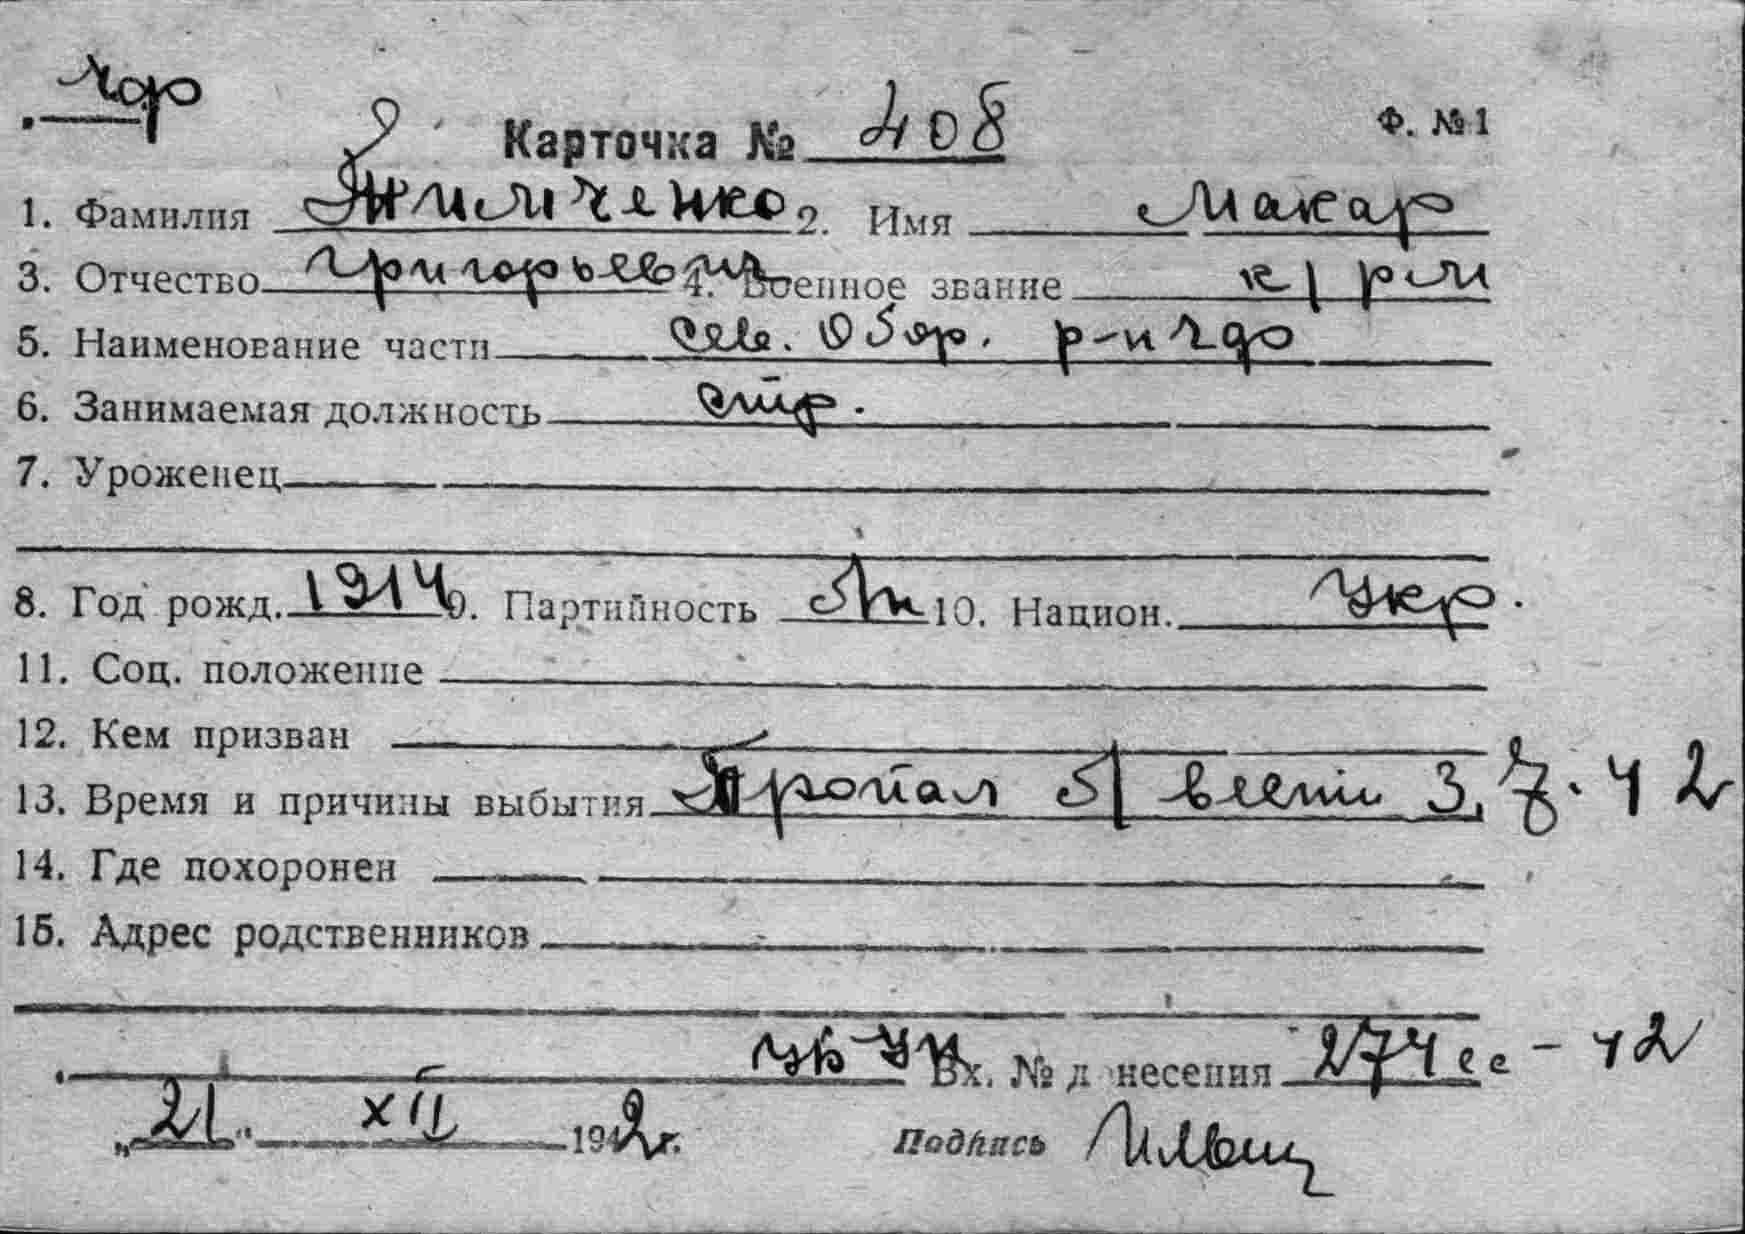 чф
Карточка № 408 Ф. № 1
1. Фамилия Тимченко 2. Имя Макар
3. Отчество Григорьевич 4. Военное звание к/рм
5. Наименование части Сев. Обор. р-н ЧФ
6. Занимаемая должность стр.
7. Уроженец
8. Год рожд. 1914 9. Партийность б/п 10. Национ. Укр.
11. Соц. положение
12. Кем призван
13. Время и причины выбытия Пропал б/вести 3.7.42
14. Где похоронен
15. Адрес родственников
Вх. № донесения 274сс-42
„21“ XII 1942г. Подпись